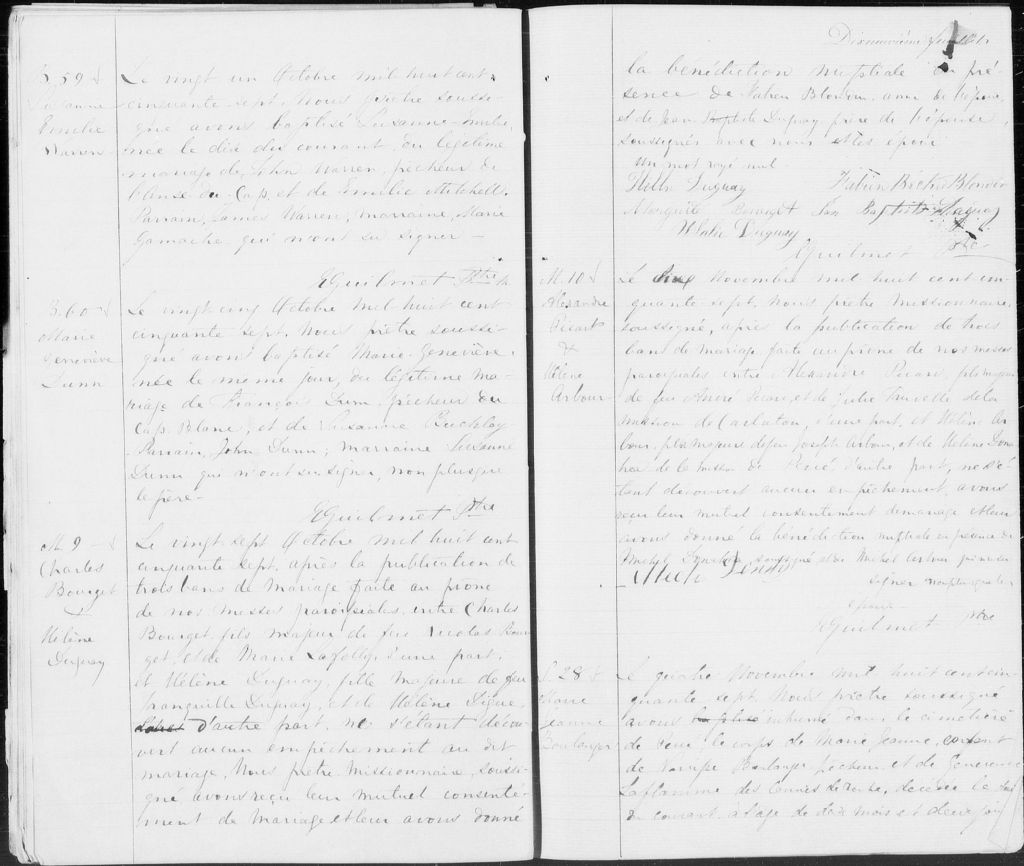 B. 59
Suzanne
Emilie
Warren
Le vingt un Octobre mil huit cent
cinquante sept. Nous prêtre soussi-
gné avons baptisé Suzanne Emilie,
née le dix du courant, du légitime
mariage de John Warren, pêcheur de
l'Anse du Cap, et de Emilie Mitchell.
Parrain, James Warren, marraine, Marie
Gamache qui n'ont su signer —
EGuilmet Ptre
B. 60
Marie
Geneviève
Dunn
Le vingt cinq Octobre mil huit cent
cinquante sept. Nous prêtre soussi-
gné avons baptisé Marie Geneviève,
née le même jour, du légitime ma-
riage de François Dunn, pêcheur du
Cap Blanc, et de Suzanne Buckley
Parrain, John Dunn; marraine Suzanne
Dunn qui n'ont su signer, non plus que
le père —
EGuilmet Ptre
M. 9
Charles
Bourget
&
Hélène
Duguay
Le vingt sept Octobre mil huit cent
cinquante sept, après la publication de
trois bans de mariage faite au prône
de nos messes paroissiales, entre Charles
Bourget, fils majeur de feu Nicolas Bour-
get, et de Marie Lafolley, d'une part;
et Hélène Duguay, fille majeure de feu
Tranquille Duguay, et de Hélène
d'autre part, ne s'étant décou-
vert aucun empêchement au dit
mariage, Nous prêtre Missionnaire, soussi-
gné avons reçu leur mutuel consente-
ment de mariage et leur avons donné
Dixneuvième feuillet
la bénédiction nuptiale en pré-
sence de Fabien Blondin, ami de l'époux,
et de Jean Baptiste Duguay, père de l'épouse,
soussignés avec nous et les époux
Un mot rayé nul
Duguay Fabien Blondin
Marguerite Bourget Jean Baptiste
Duguay
EGuilmet Ptre
M. 10
Alexandre
Picart
&
Hélène
Arbour
Le cinq Novembre mil huit cent cin-
quante sept, nous prêtre missionnaire
soussigné, après la publication de trois
bans de mariage faite au prône de nos messes
paroissiales entre Alexandre Picart, fils majeur
de feu André Picart, et de Julie Trudelle de la
mission de Carleton, d'une part, et Hélène Ar-
bour, fille majeure de feu Joseph Arbour, et de Hélène
de la mission de Percé, d'autre part, ne s'é-
tant découvert aucun empêchement, avons
reçu leur mutuel consentement de mariage et leur
avons donné la bénédiction nuptiale en présence de
Michel soussigné et de Michel Arbour qui n'a su
signer non plus que les
époux
EGuilmet Ptre
S. 28
Marie
Jeanne
Boulanger
Le quatre Novembre mil huit cent cin-
quante sept, Nous prêtre soussigné
avons inhumé dans le cimetière
de Percé, le corps de Marie Jeanne, enfant
de Boulanger, pêcheur, et de Geneviève
Laflamme décédée le
du courant à l'âge de dix mois et deux jours